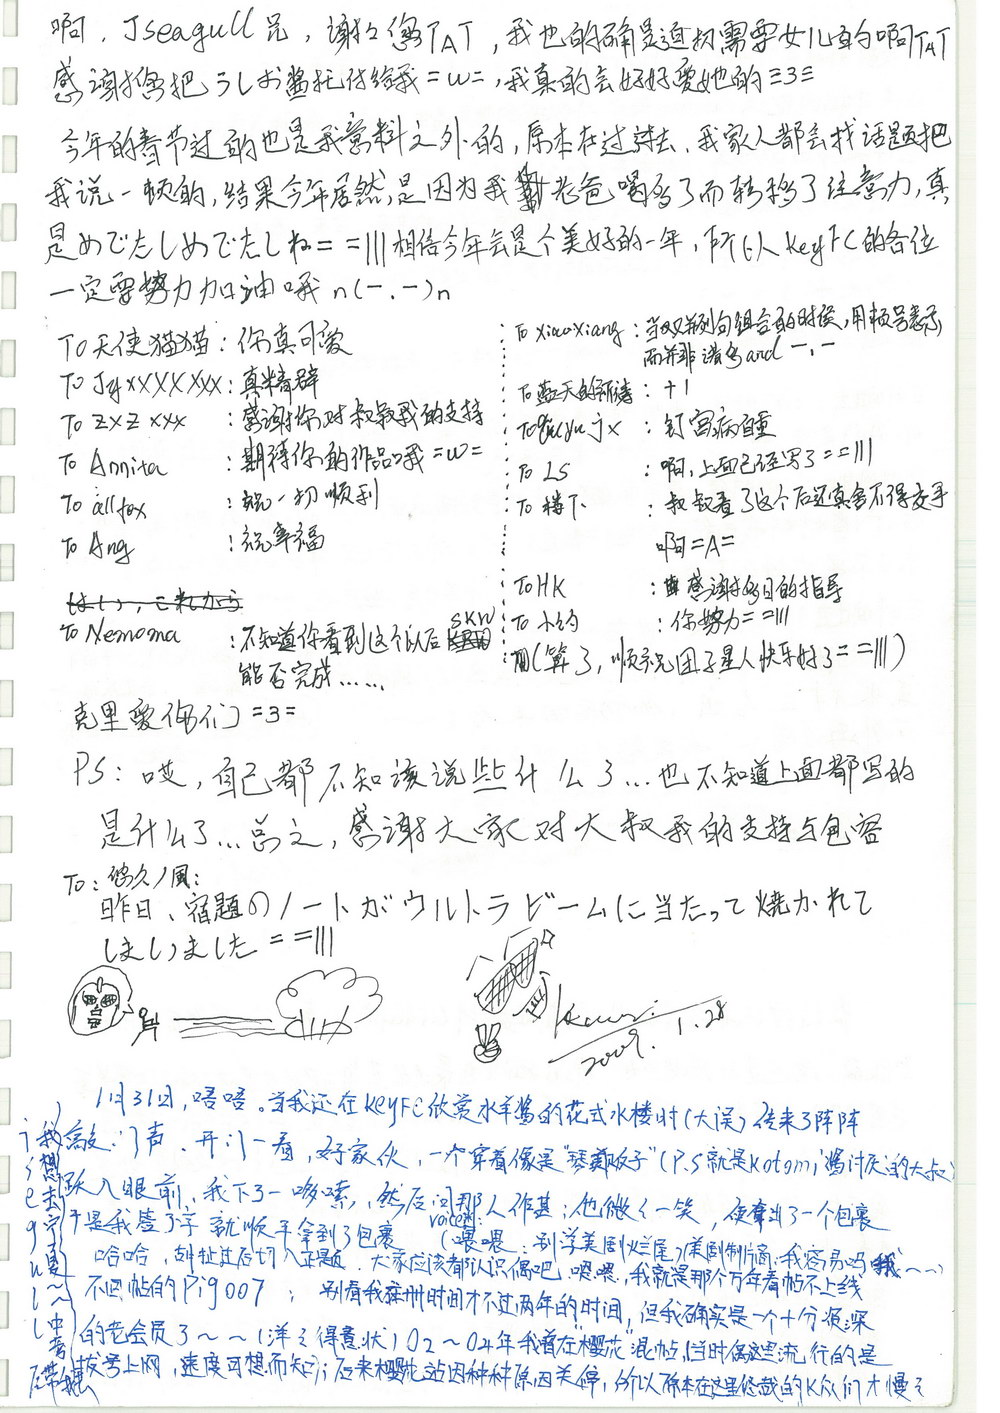 啊，Jseagull兄，谢谢您TAT，我也的确是迫切需要女儿的啊TAT
感谢您把うしお酱托付给我=w=，我真的会好好爱她的=3=
今年的春节过的也是我意料之外的，原本在过去，我家人都会找话题把
我说一顿的，结果今年居然是因为我老爸喝多了而转移了注意力，真
是めでたしめでたしね= =||| 相信今年会是个美好的一年，所以KeyFC的各位
一定要努力加油哦 n(一.一)n
To 天使猫猫：你真可爱
To JyxXXXXXxx：真精辟
To zxz xxx：感谢你对叔叔我的支持
To Annita：期待你的作品哦=w=
To allfox：祝一切顺利
To Ang：祝幸福
はい，これから
To Nemoma：不知道你看到这个以后SKW
能否完成……
To xiaoXiang：当双并列句组合的时候，用顿号表示
而并非逗号and 一.一
To 蓝天的祈祷：+1
To qiuyujx：钉宫病自重
To LS：啊，上面已经写了= =|||
To 楼下：叔叔看了这个后还真舍不得交手
啊=A=
To HK：感谢多日的指导
To 小约：你努力= =|||
(算了，顺祝团子星人快乐好了= =|||)
克里爱你们=3=
PS：哎，自己都不知该说些什么了…也不知道上面都写的
是什么了…总之，感谢大家对大叔我的支持与包容
To：悠久ノ風：
昨日、宿題のノートがウルトラビームに当たって焼かれて
しまいました= =|||
2009.1.28
1月31日，唔唔。当我还在KeyFC欣赏水羊酱的花式水楼时(大误)传来了阵阵
敲门声．开门一看，好家伙，一个穿着像是"琴贩子"(P.S就是kotomi酱讨厌的大叔)
跃入眼前，我下了一哆嗦，然后问那人作甚；他微微一笑，便拿出了一个包裹
于是我签了字 就顺手拿到了包裹
哈哈，胡扯过后切入正题．大家应该都认识偶吧．嗯嗯，我就是那个万年看帖不上线
不回帖的Pig007；别看我注册时间才不过两年的时间，但我确实是一个十分资深
的老会员了～～(洋洋得意状)02～04年我曾在"樱花"混帖，当时偶这流行的是
拨号上网，速度可想而知；后来樱花站因种种原因关停，所以原本在这里的K众们才慢慢